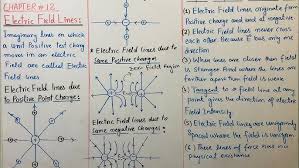 CHAPTER # 12
Electric Field Lines:
Imaginary lines on which
a Unit Positive test charge
moves in an electric
field are called Electric
Field lines
Electric Field lines due
to Positive Point Charge:
* Electric Field lines due to
Same Positive charges:
zero field region
Electric Field lines due to
Same negative charges:
(1) Electric Field lines originate from
Positive charge and end at negative
(2) Electric Field lines never cross
each other because E has only one
direction
(3) When lines are closer then field is
stronger and when the lines are
farther apart then field is weak
(4) Tangent to a field line at any
point gives the direction of
electric field Intensity
(5) Electric Field lines are uniformly
spaced where the field is uniform
(6)